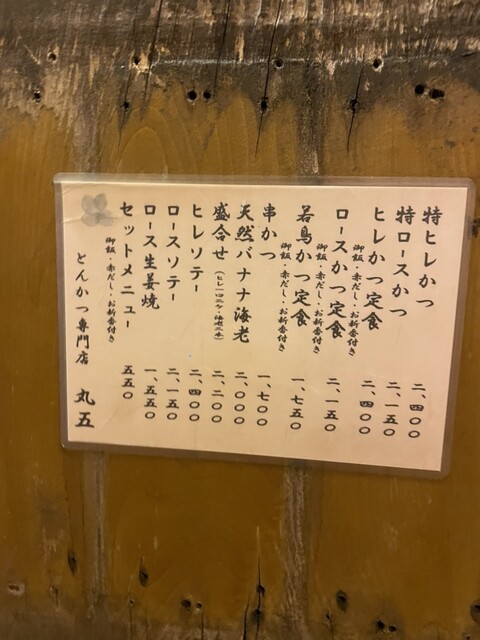 特ヒレかつ 二、四〇〇
特ロースかつ 二、一五〇
ヒレかつ定食 二、四〇〇
御飯・赤だし・お新香付き
ロースかつ定食 二、一五〇
御飯・赤だし・お新香付き
若鳥かつ定食 一、七五〇
御飯・赤だし・お新香付き
串かつ 一、七〇〇
天然バナナ海老 二、〇〇〇
盛合せ(ヒレ一口二ケ・海老二本) 二、二〇〇
ヒレソテー 二、四〇〇
ロースソテー 二、一五〇
ロース生姜焼 一、五五〇
セットメニュー 五五〇
御飯・赤だし・お新香付き
とんかつ専門店 丸五